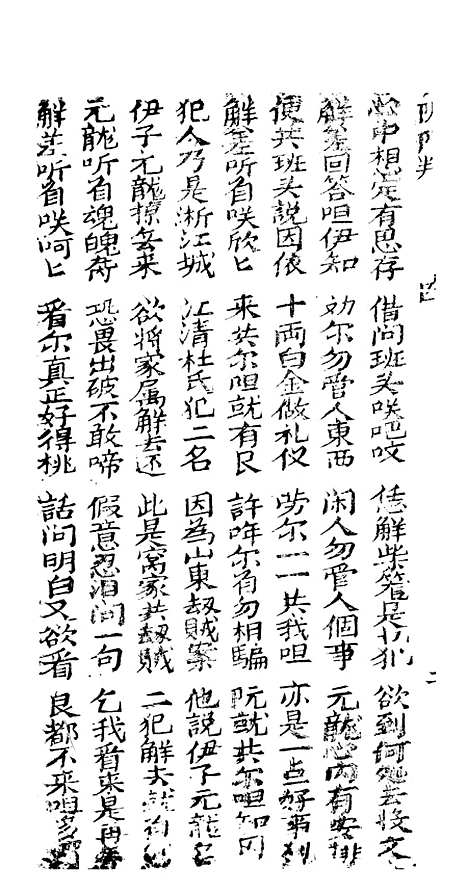 心中想定有思存 借问班头咲吧吺 恁解柴篭是乜犯 欲到何処去收文
解差回答呾伊知 劝尔勿管人東西 闲人勿管人個事 元龍心内有安排
便共班头説因依 十両白金做礼仪 劳尔一一共我呾 亦是一点好事
解差听着咲欣匕 来共尔呾就有艮 許年尔肯勿相騙 阮就共尔呾知
犯人乃是淅江城 江清杜氏犯二名 因為山東刼賊案 他説伊子元龍名
伊子元龍掠去来 欲将家属解去还 此是窩家共刼賊 二犯解去就
元龍听着魂魄奇 恐畏出破不敢啼 假意忍泪问一句 乞我看来是再
解差听着咲呵匕 看尔真正好得桃 話问明白又欲看 艮都不来呾多